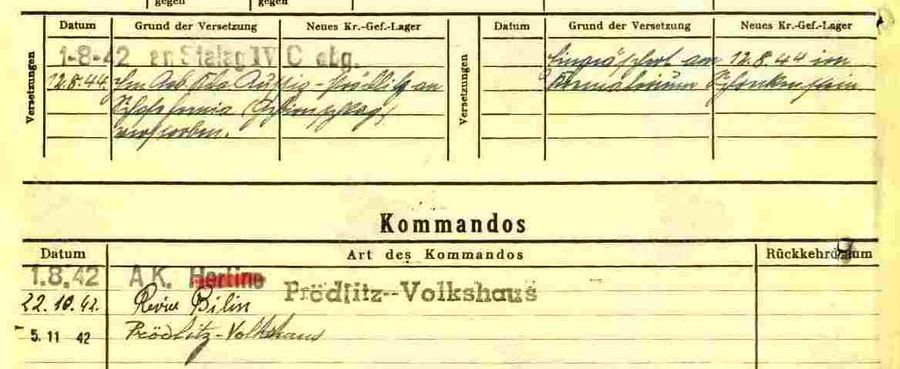 gegen gegen
Versetzungen
Datum Grund der Versetzung Neues Kr.-Gef.-Lager
1-8-42 an Stalag IV C abg.
12.8.44 Im Aussig-Prödlitz an
verstorben.
Versetzungen
Datum Grund der Versetzung Neues Kr.-Gef.-Lager
Eingeäschert am 12.8.44 im
Krematorium Schenkenstein
Kommandos
Datum Art des Kommandos Rückkehrdatum
1.8.42 A.K. Hertine
Prödlitz--Volkshaus
22.10.42. Revier Bilin
5.11 42 Prödlitz-Volkshaus